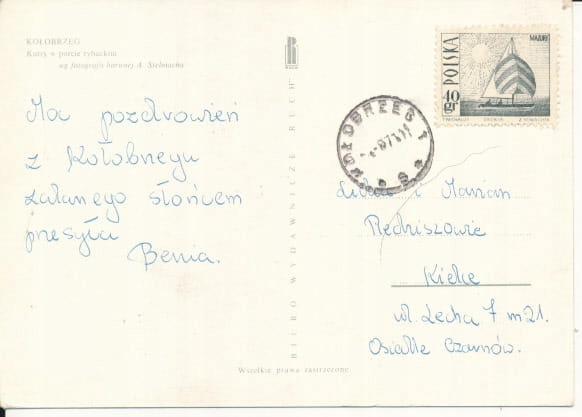 KOŁOBRZEG
Kutry w porcie rybackim
wg fotografii barwnej A. Stelmacha
Moc pozdrowień
z Kołobrzegu
zalanego słońcem
przesyła
Benia.
BIURO WYDAWNICZE RUCH
RUCH
Wszelkie prawa zastrzeżone
POLSKA
MAZURY
40 gr
KOŁOBRZEG 1
i Marian
Kielce
ul. Lecha 7 m 21.
Osiedle Czarnów.